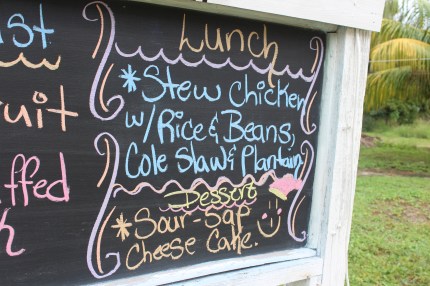 Lunch
*Stew Chicken
w/ Rice & Beans,
Cole Slaw & Plantain
Dessert
*Sour-Sap
Cheese Cake.